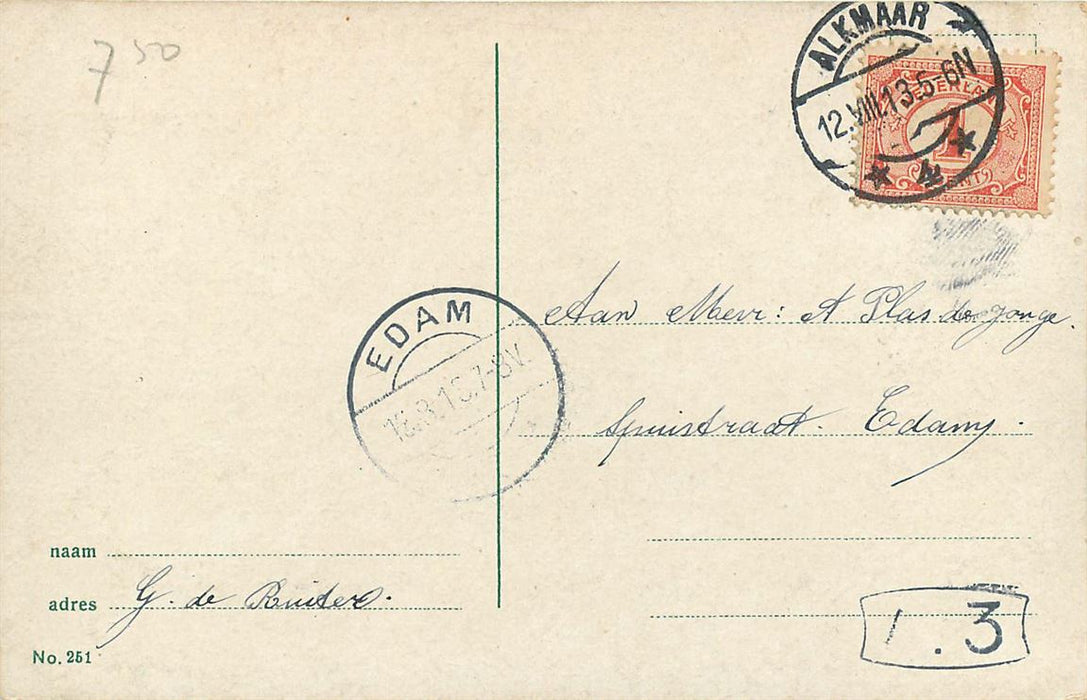 7 50
ALKMAAR
12.VIII.13.5-6N
4
NEDERLAND
1
CENT
EDAM
7-8V.
Aan Mevr: A Plas de Jonge.
Spuistraat. Edam.
naam
adres G. de Ruiter.
No. 251
. 3